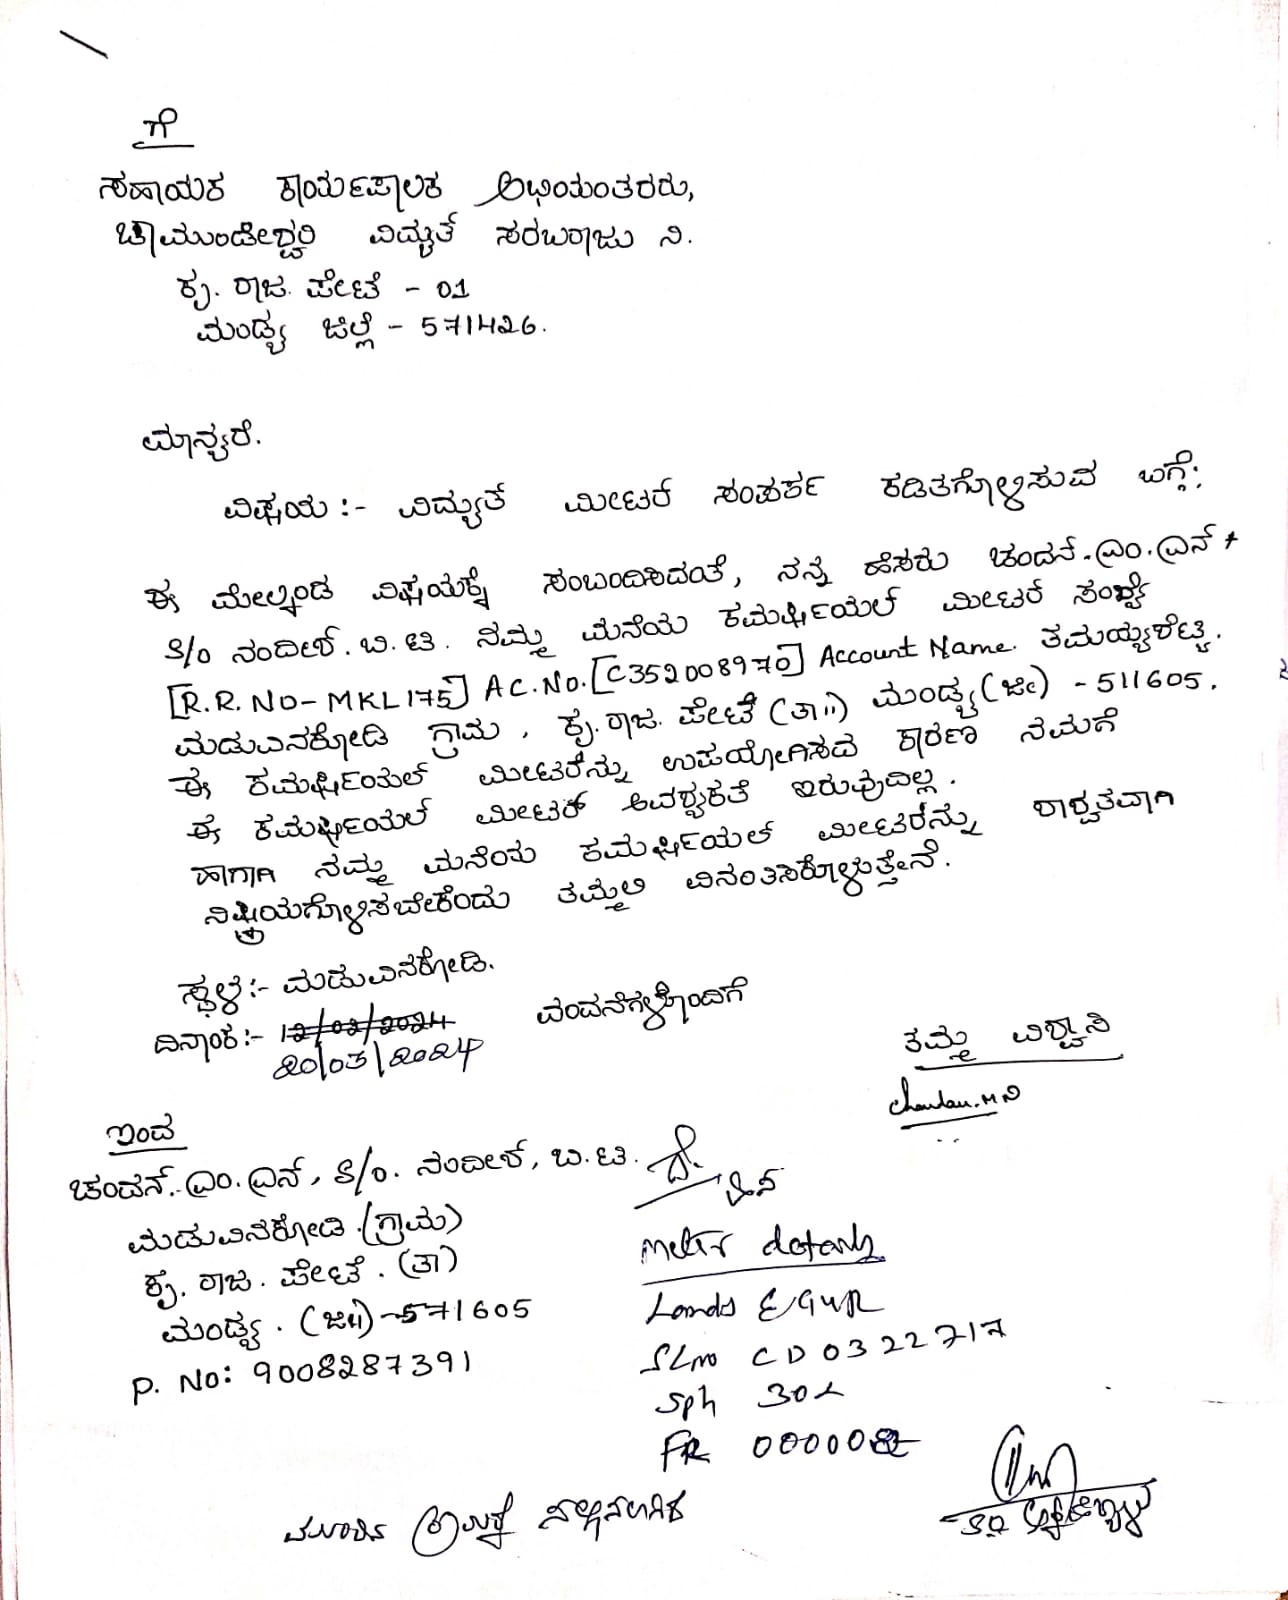 ಗೆ
ಸಹಾಯಕ ಕಾರ್ಯಪಾಲಕ ಅಭಿಯಂತರರು,
ಚಾಮುಂಡೇಶ್ವರಿ ವಿದ್ಯುತ್ ಸರಬರಾಜು ನಿ.
ಕೃ. ರಾಜ. ಪೇಟೆ - 01
ಮಂಡ್ಯ ಜಿಲ್ಲೆ - 571426.
ಮಾನ್ಯರೆ.
ವಿಷಯ :- ವಿದ್ಯುತ್ ಮೀಟರ್ ಸಂಪರ್ಕ ಕಡಿತಗೊಳ್ಳಿಸುವ ಬಗ್ಗೆ;
ಈ ಮೇಲ್ಕಂಡ ವಿಷಯಕ್ಕೆ ಸಂಬಂದಿಸಿದಂತೆ, ನನ್ನ ಹೆಸರು ಚಂದನ್.ಎಂ.ಎನ್
S/o ನಂದೀಶ್.ಬಿ.ಟಿ. ನಮ್ಮ ಮನೆಯ ಕಮರ್ಷಿಯಲ್ ಮೀಟರ್ ಸಂಖ್ಯೆ
[R.R.NO-MKL175] AC.No.[C352008970] Account Name. ತಮಯ್ಯಶೆಟ್ಟಿ.
ಮಡುವಿನಕೋಡಿ ಗ್ರಾಮ, ಕೃ.ರಾಜ.ಪೇಟೆ (ತಾ॥) ಮಂಡ್ಯ(ಜಿ) - 511605.
ಈ ಕಮರ್ಷಿಯಲ್ ಮೀಟರನ್ನು ಉಪಯೋಗಿಸದ ಕಾರಣ ನಮಗೆ
ಈ ಕಮರ್ಷಿಯಲ್ ಮೀಟರ್ ಅವಶ್ಯಕತೆ ಇರುವುದಿಲ್ಲ.
ಹಾಗಾಗಿ ನಮ್ಮ ಮನೆಯ ಕಮರ್ಷಿಯಲ್ ಮೀಟರನ್ನು ಶಾಶ್ವತವಾಗಿ
ನಿಷ್ಕ್ರಿಯಗೊಳ್ಳಿಸಬೇಕೆಂದು ತಮ್ಮಲಿ ವಿನಂತಿಸಿಕೊಳ್ಳುತ್ತೇನೆ.
ಸ್ಥಳ:- ಮಡುವಿನಕೋಡಿ.
ದಿನಾಂಕ:- 12/02/2024 ವಂದನೆಗಳೊಂದಿಗೆ
೨೦/೦೩/೨೦೨೪
ತಮ್ಮ ವಿಶ್ವಾಸಿ
Chandan.M N
ಇಂದ
ಚಂದನ್.ಎಂ.ಎನ್, S/o. ನಂದೀಶ್, ಬಿ.ಟಿ.
ಮಡುವಿನಕೋಡಿ.(ಗ್ರಾಮ)
ಕೃ. ರಾಜ. ಪೇಟೆ. (ತಾ)
ಮಂಡ್ಯ. (ಜಿ॥)-571605
P. No: 9008287391
Meter details
SLno CD0322717
FR 000008